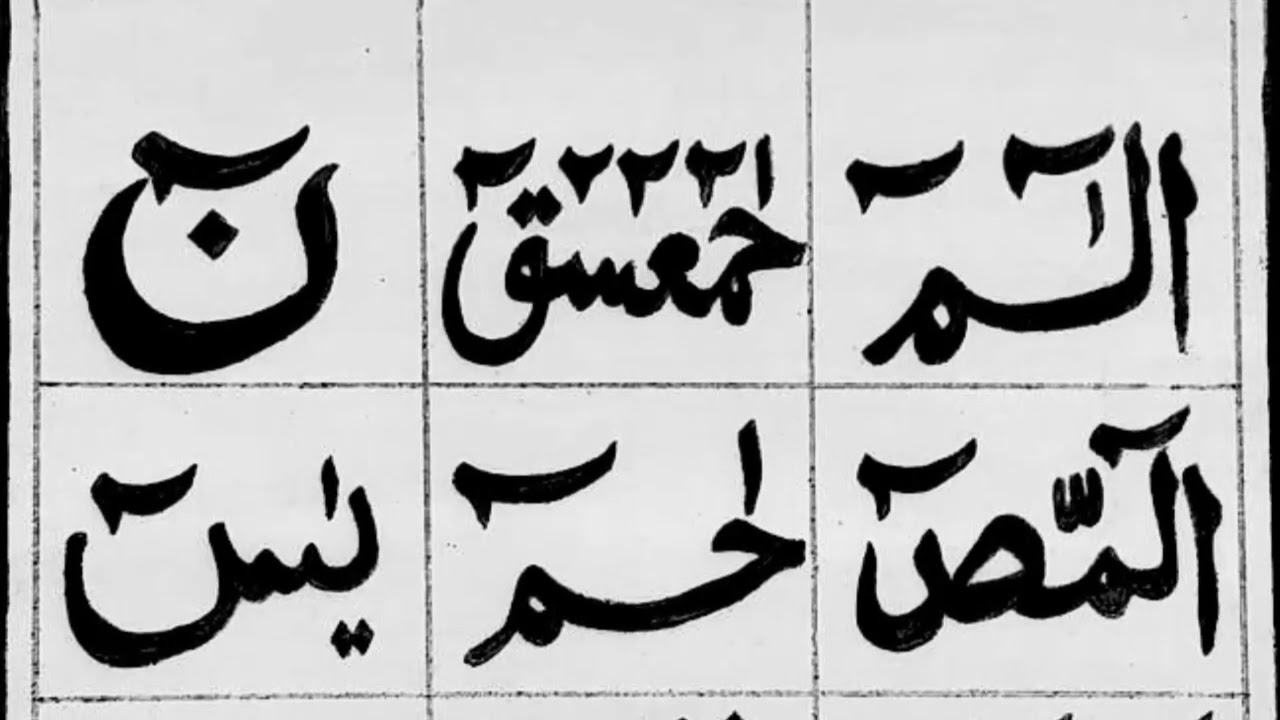 الٓمٓ حٰمٓعٓسٓقٓ نٓ
الٓمّٓصٓ حٰمٓ يٰسٓ